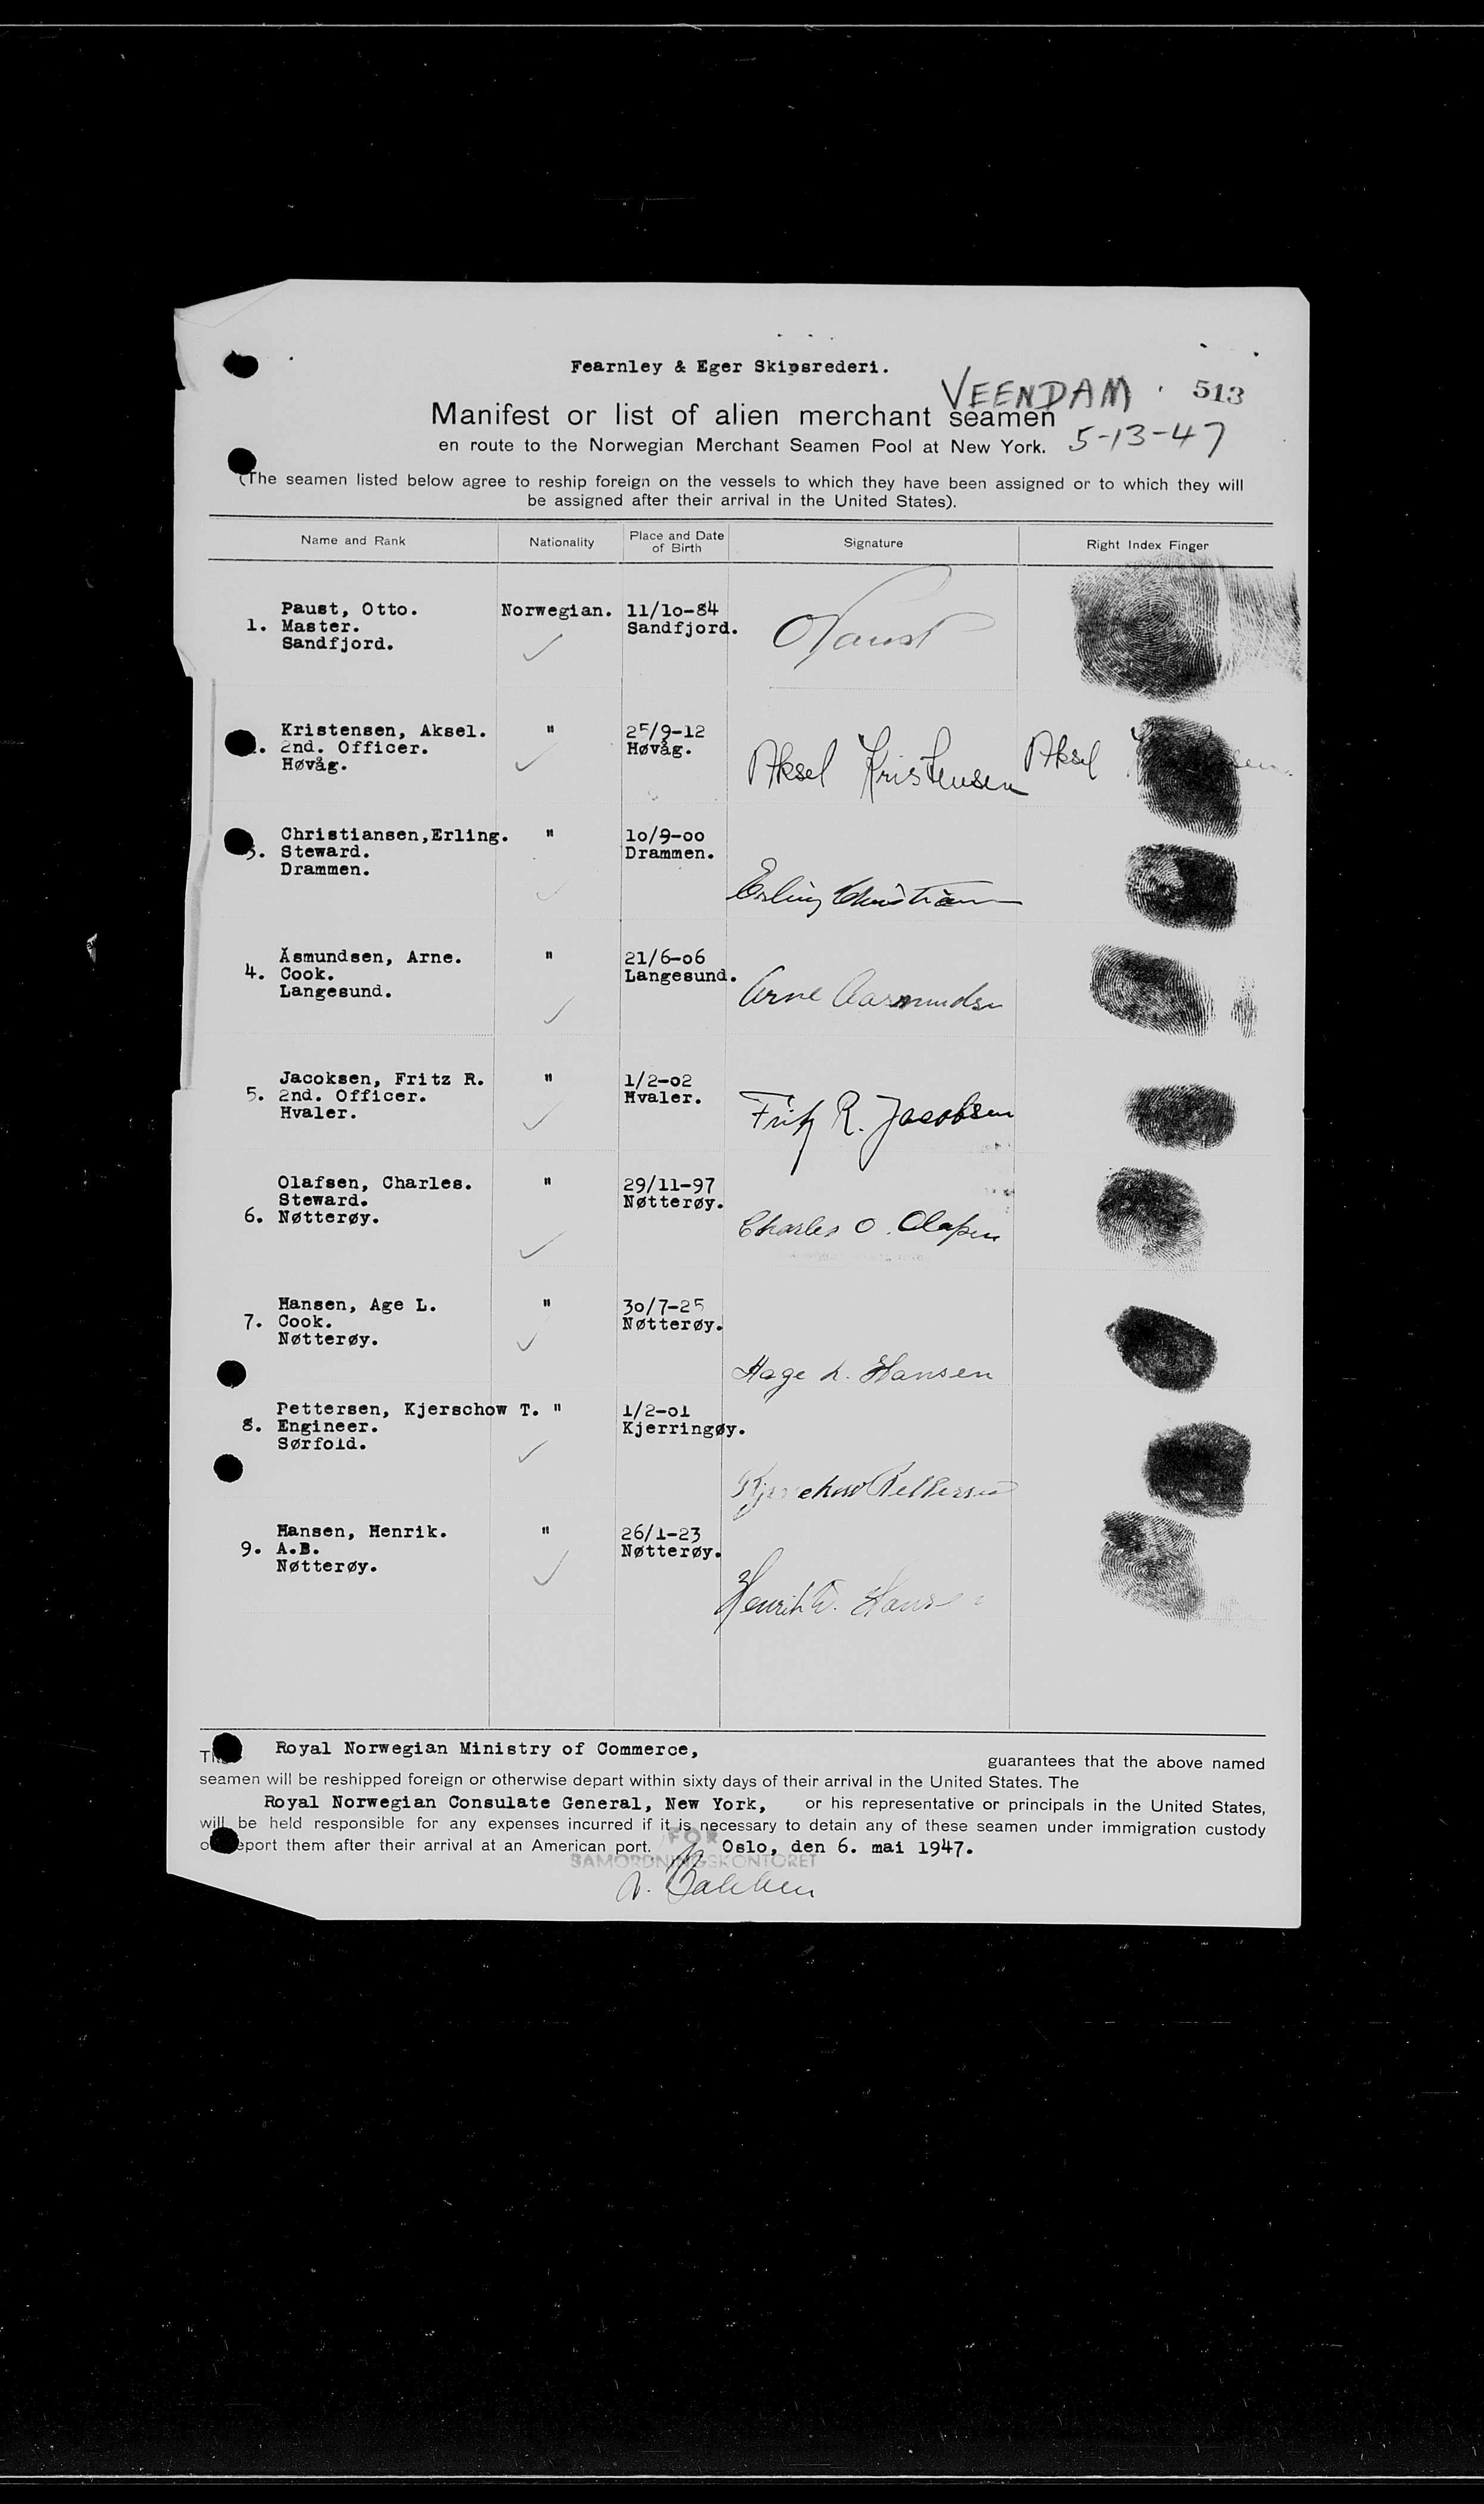 Fearnley & Eger Skipsrederi.
VEENDAM 513
Manifest or list of alien merchant seamen
en route to the Norwegian Merchant Seamen Pool at New York. 5-13-47
(The seamen listed below agree to reship foreign on the vessels to which they have been assigned or to which they will
be assigned after their arrival in the United States).
Name and Rank Nationality Place and Date of Birth Signature Right Index Finger
Paust, Otto. Norwegian. 11/10-84
1. Master. Sandfjord. OPaust
Sandfjord.
Kristensen, Aksel. " 25/9-12
2nd. Officer. Høvåg. Aksel Kristensen Aksel
Høvåg.
Christiansen,Erling. " 10/9-00
3. Steward. Drammen.
Drammen. Erling Christiansen
Åsmundsen, Arne. " 21/6-06
4. Cook. Langesund. Arne Aasmundsen
Langesund.
Jacoksen, Fritz R. " 1/2-02
5. 2nd. Officer. Hvaler. Fritz R. Jacobsen
Hvaler.
Olafsen, Charles. " 29/11-97
Steward. Nøtterøy.
6. Nøtterøy. Charles O. Olafsen
Hansen, Age L. " 30/7-25
7. Cook. Nøtterøy.
Nøtterøy. Aage L. Hansen
Pettersen, Kjerschow T. " 1/2-01
8. Engineer. Kjerringøy.
Sørfold. Kjerschow Pettersen
Hansen, Henrik. " 26/1-23
9. A.B. Nøtterøy.
Nøtterøy. Henrik W. Hansen
Royal Norwegian Ministry of Commerce, guarantees that the above named
seamen will be reshipped foreign or otherwise depart within sixty days of their arrival in the United States. The
Royal Norwegian Consulate General, New York, or his representative or principals in the United States,
will be held responsible for any expenses incurred if it is necessary to detain any of these seamen under immigration custody
eport them after their arrival at an American port. Oslo, den 6. mai 1947.
FOR
SAMORDNINGSKONTORET